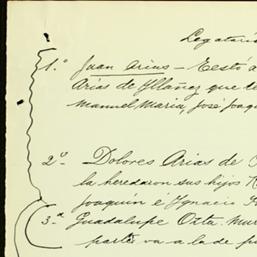 Legatari
1.° Juan Arias - Testó a
Arias de Yllañez que te
manuel Maria, José Joaqu
2.° Dolores Arias de
la heredaron sus hijos
Joaquin é Ygnacio
3.ª Guadalupe Ortu. mur
parte va a la de